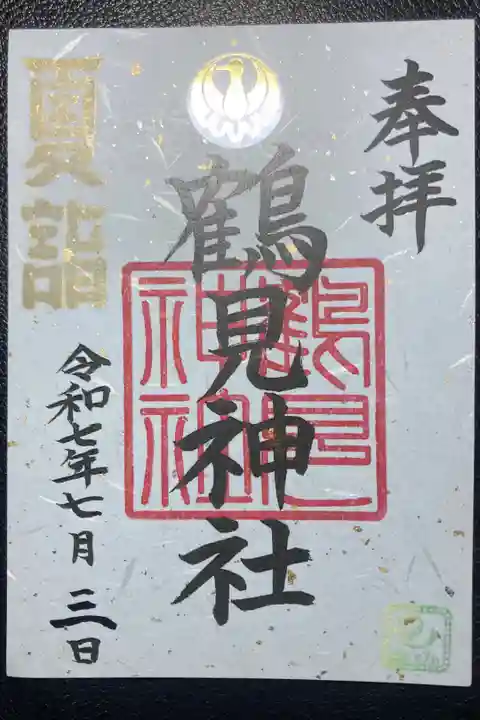 奉拝
鶴見神社
鶴見神社
夏詣
令和七年七月三日